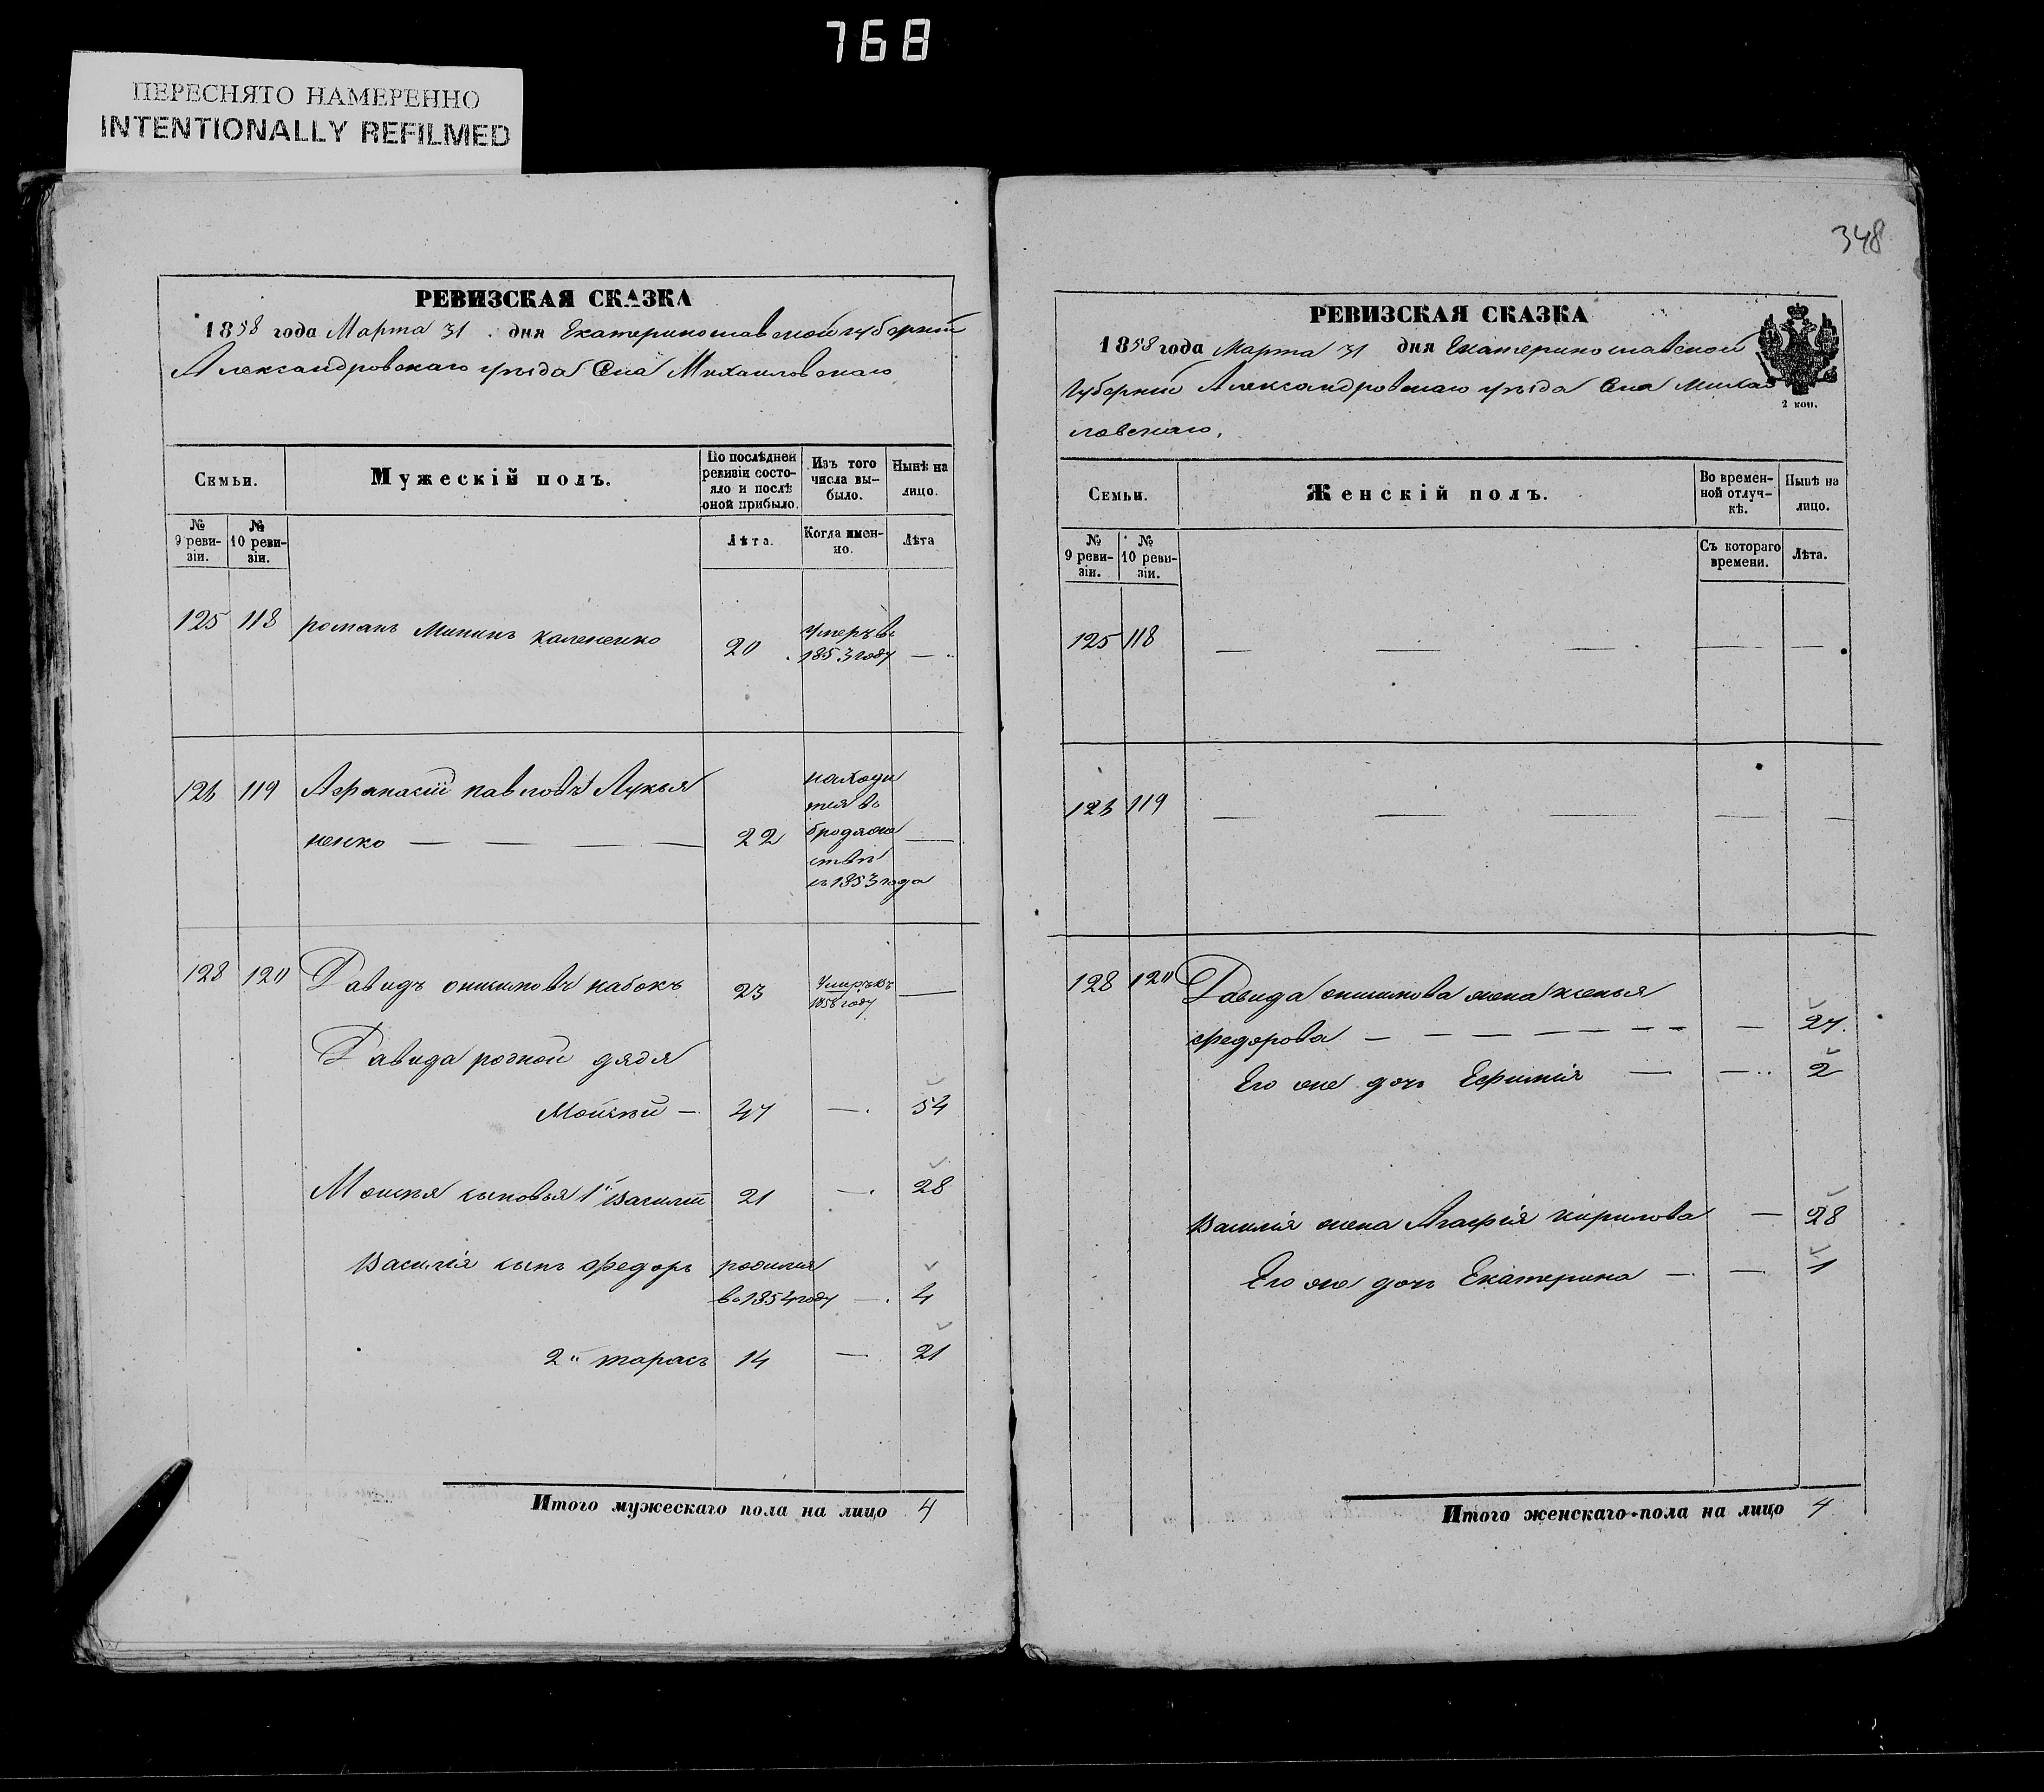 768
ПЕРЕСНЯТО НАМЕРЕННО
INTENTIONALLY REFILMED
РЕВИЗСКАЯ СКАЗКА
1858 года Марта 31 дня Екатеринославской губерніи
Александровскаго уѣзда Села Михайловскаго
Семьи.
Мужескій полъ.
По послѣдней ревизіи состо-
яло и послѣ
оной прибыло.
Изъ того
числа вы-
было.
Нынѣ на
лицо.
№
9 реви-
зіи.
№
10 реви-
зіи.
Лѣта.
Когда имен-
но.
Лѣта
125 118 романъ Мининъ 20 Умеръ въ
1853 году —
126 119 Афанасій павловъ Лукья
ненко — — — — 22 находи
тся въ
бродяже
ствѣ
съ 1853 года —
128 120 Давидъ онисимовъ кабокъ 23 Умеръ въ
1858 году —
Давида родной дядя
Моисѣй — 47 — 54
Моисѣя сыновья 1й Василій 21 — 28
Василія сынъ Федоръ родился
въ 1854 году — 4
2й тарасъ 14 — 21
Итого мужескаго пола на лицо 4
348
РЕВИЗСКАЯ СКАЗКА
1858 года Марта 31 дня Екатеринославской
Губерніи Александровскаго уѣзда Села Михай
ловскаго.
2 коп.
Семьи.
Женскій полъ.
Во времен-
ной отлуч-
кѣ.
Нынѣ на
лицо.
№
9 реви-
зіи.
№
10 реви-
зіи.
Съ котораго
времени.
Лѣта.
125 118 — — — — —
126 119 — — — — —
128 120 Давида онисимова жена
федорова — — — — — — — — 27
Его же дочь Ефимія — — 2
Василія жена Агафія кирилова — 28
Его же дочь Екатерина — — 1
Итого женскаго пола на лицо 4